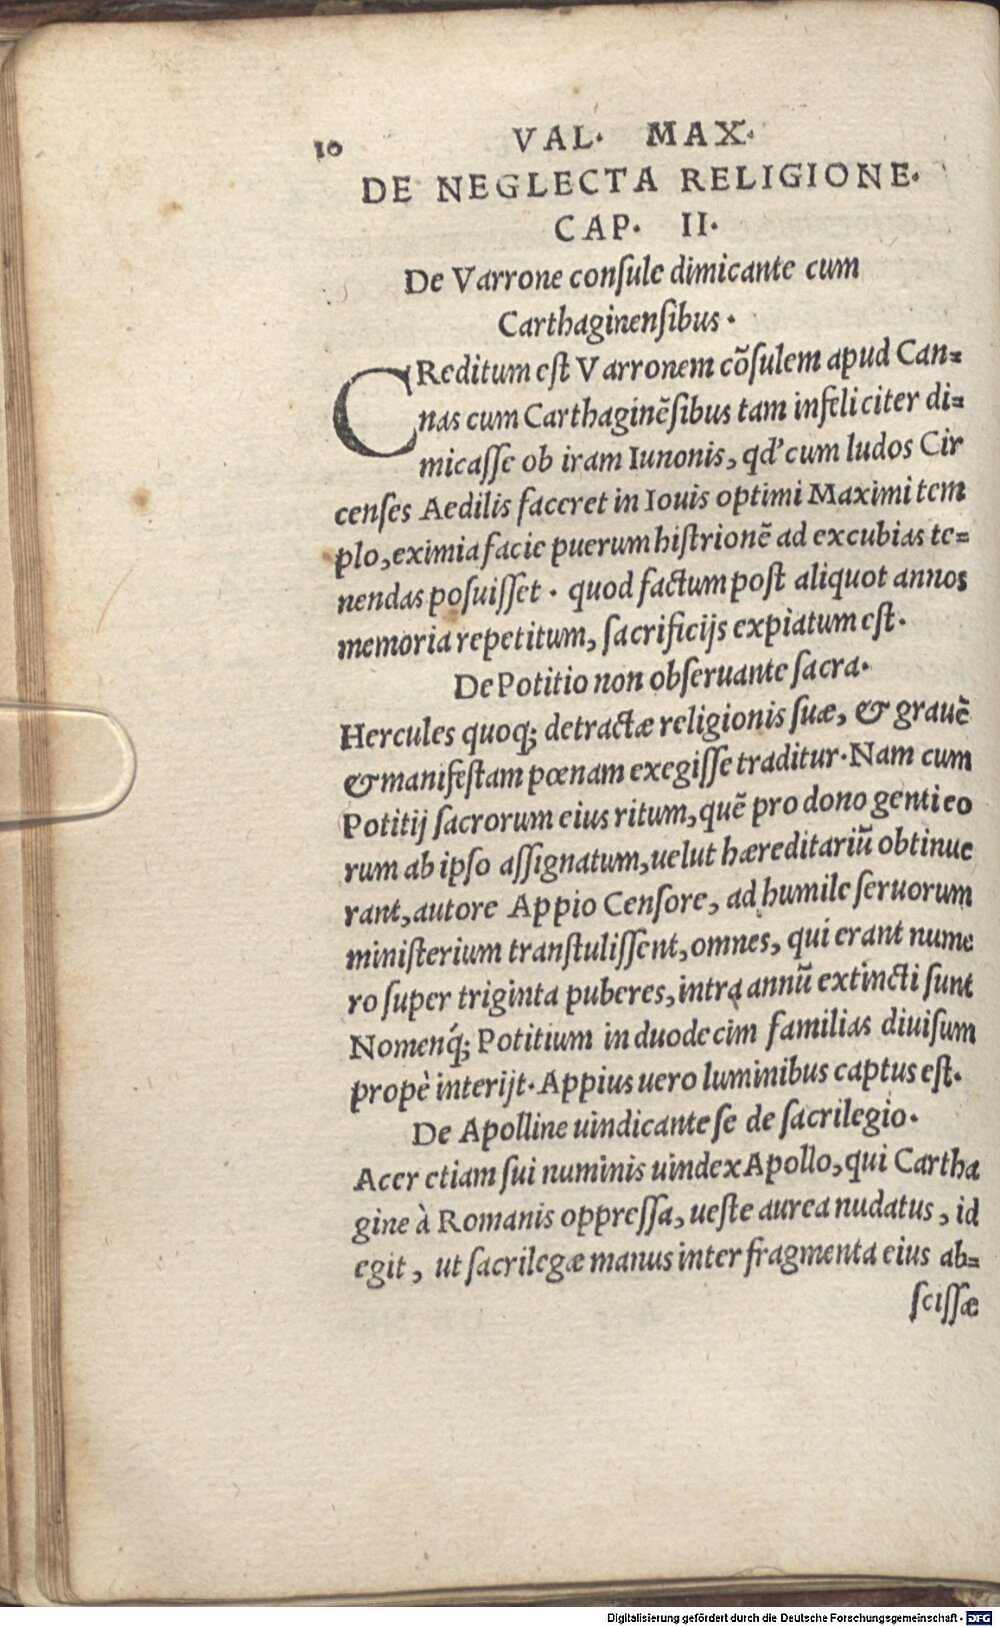 10 VAL. MAX.
DE NEGLECTA RELIGIONE.
CAP. II.
De Varrone conſule dimicante cum
Carthaginenſibus.
CReditum eſt Varronem cõſulem apud Can-
nas cum Carthaginẽſibus tam infeliciter di-
micaſſe ob iram Iunonis, qd' cum ludos Cir
cenſes Aedilis faceret in Iouis optimi Maximi tem
plo, eximia facie puerum hiſtrionẽ ad excubias te-
nendas poſuiſſet. quod factum poſt aliquot annos
memoria repetitum, ſacrificijs expiatum eſt.
De Potitio non obſeruante ſacra.
Hercules quoq; detractæ religionis ſuæ, & grauẽ
& manifeſtam pœnam exegiſſe traditur. Nam cum
Potitij ſacrorum eius ritum, quẽ pro dono genti eo
rum ab ipſo aſſignatum, uelut hæreditariũ obtinue
rant, autore Appio Cenſore, ad humile ſeruorum
miniſterium tranſtuliſſent, omnes, qui erant nume
ro ſuper triginta puberes, intra annũ extincti ſunt
Nomenq́; Potitium in duodecim familias diuiſum
propè interijt. Appius uero luminibus captus eſt.
De Apolline uindicante ſe de ſacrilegio.
Acer etiam ſui numinis uindex Apollo, qui Cartha
gine à Romanis oppreſſa, ueſte aurea nudatus, id
egit, ut ſacrilegæ manus inter fragmenta eius ab-
ſciſſæ
Digitalisierung gefördert durch die Deutsche Forschungsgemeinschaft - DFG